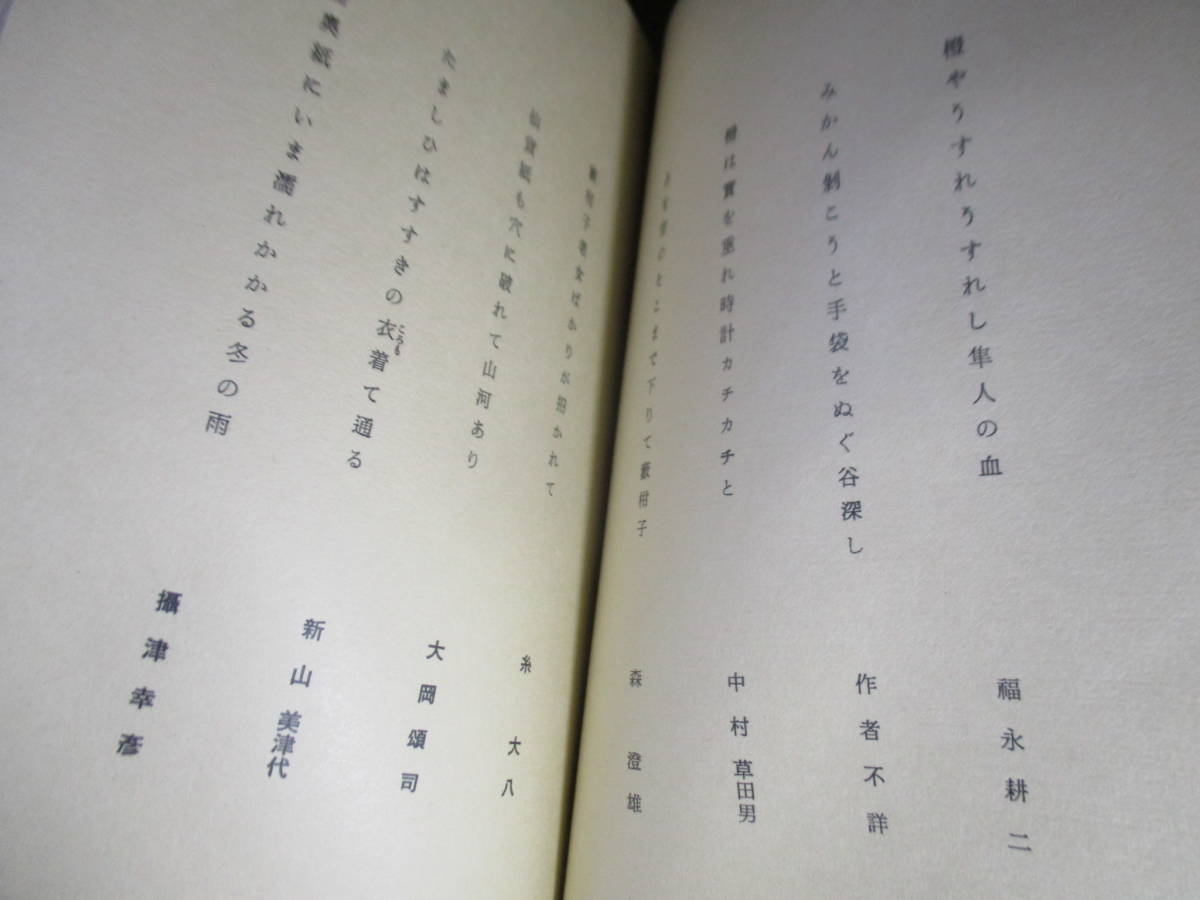 橙やうすれうすれし隼人の血
福永耕二
みかん剝こうと手袋をぬぐ谷深し
作者不詳
橙は實を垂れ時計カチカチと
中村草田男
のとこまで下りて藪柑子
森澄雄
柑子老女ばかりが招かれて
糸大八
仙貨紙も穴に破れて山河あり
大岡頌司
たましひはすすきの衣着て通る
ころも
新山美津代
奥紙にいま濡れかかる冬の雨
攝津幸彥